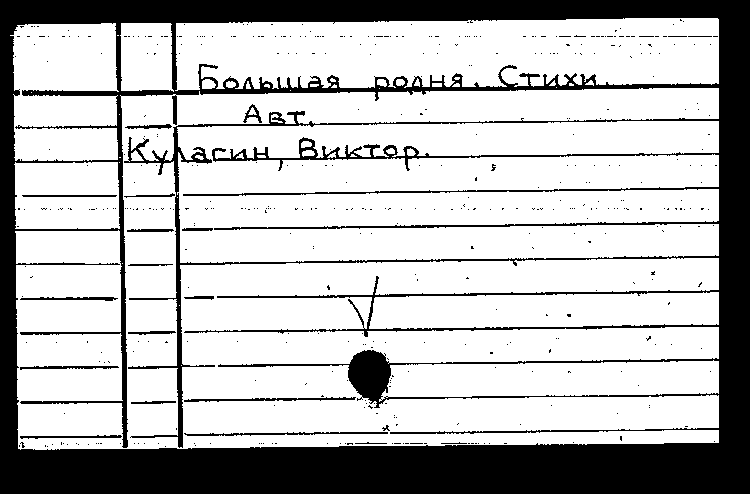 Большая родня. Стихи.
Авт.
Кулагин, Виктор.